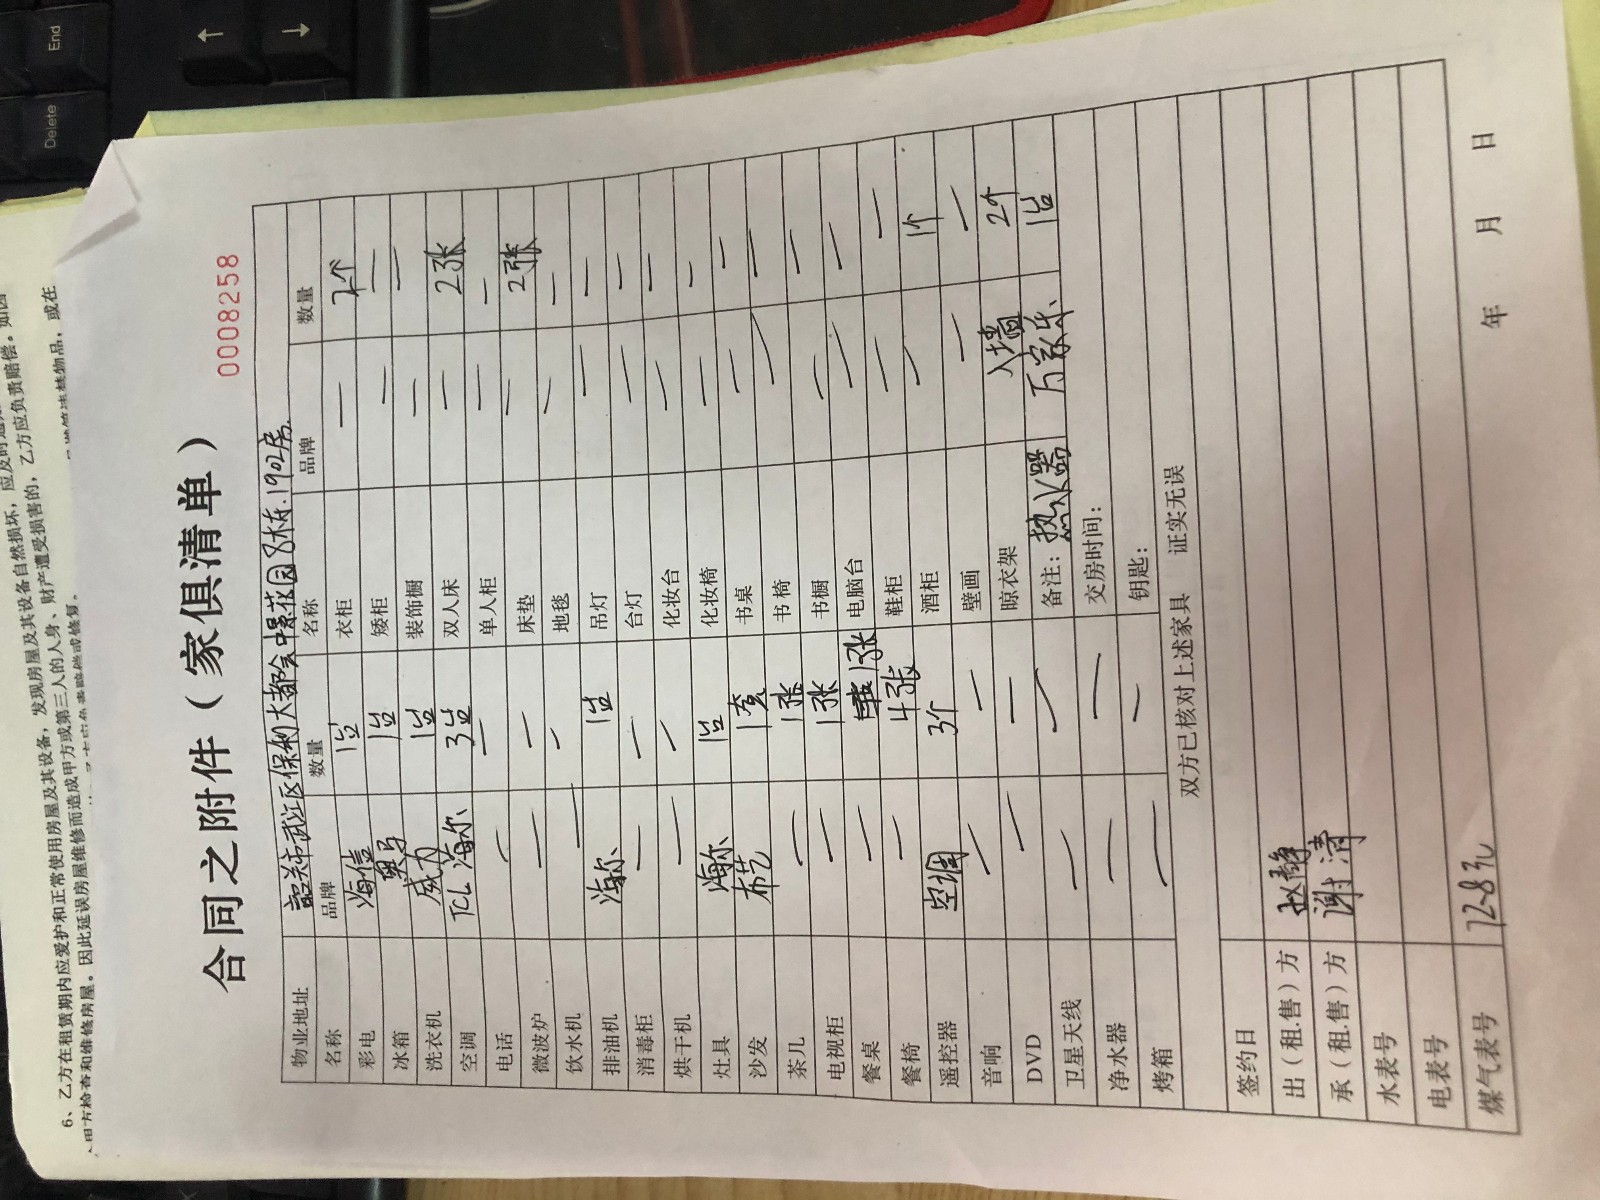 End
Delete
↑
↓
6、乙方在租赁期内应爱护和正常使用房屋及其设备，发现房屋及其设备自然损坏，应及时通
和维修房屋。因此延误房屋维修而造成甲方或第三人的人身、财产遭受损害的，乙方应负责赔偿。如因
物品，或在
0008258
合同之附件（家俱清单）
物业地址 韶关市武江区保利大都会中景花园8栋.1902房
名称 品牌 数量 名称 品牌 数量
彩电 海信 1台 衣柜 — 2个
冰箱 奥马 1台 矮柜 — —
洗衣机 威力 1台 装饰橱 — —
空调 TCL 海尔 3台 双人床 — 2张
电话 — — 单人柜 — —
微波炉 — — 床垫 — 2张
饮水机 — — 地毯 — —
排油机 海尔 1台 吊灯 — —
消毒柜 — — 台灯 — —
烘干机 — — 化妆台 — —
灶具 海尔 1台 化妆椅 — —
沙发 布艺 1套 书桌 — —
茶几 — 1张 书椅 — —
电视柜 — 1张 书橱 — —
餐桌 — 1张 电脑台 — —
餐椅 — 4张 鞋柜 — 1个
遥控器 空调 3个 酒柜 — —
音响 — — 壁画 入墙 2个
DVD — — 晾衣架 万家乐 1台
卫星天线 — — 备注：热水器
净水器 — — 交房时间：
烤箱 — — 钥匙：
双方已核对上述家具 证实无误
签约日
出（租.售）方 赵静
承（租.售）方 谢清
水表号
电表号
煤气表号
年 月 日